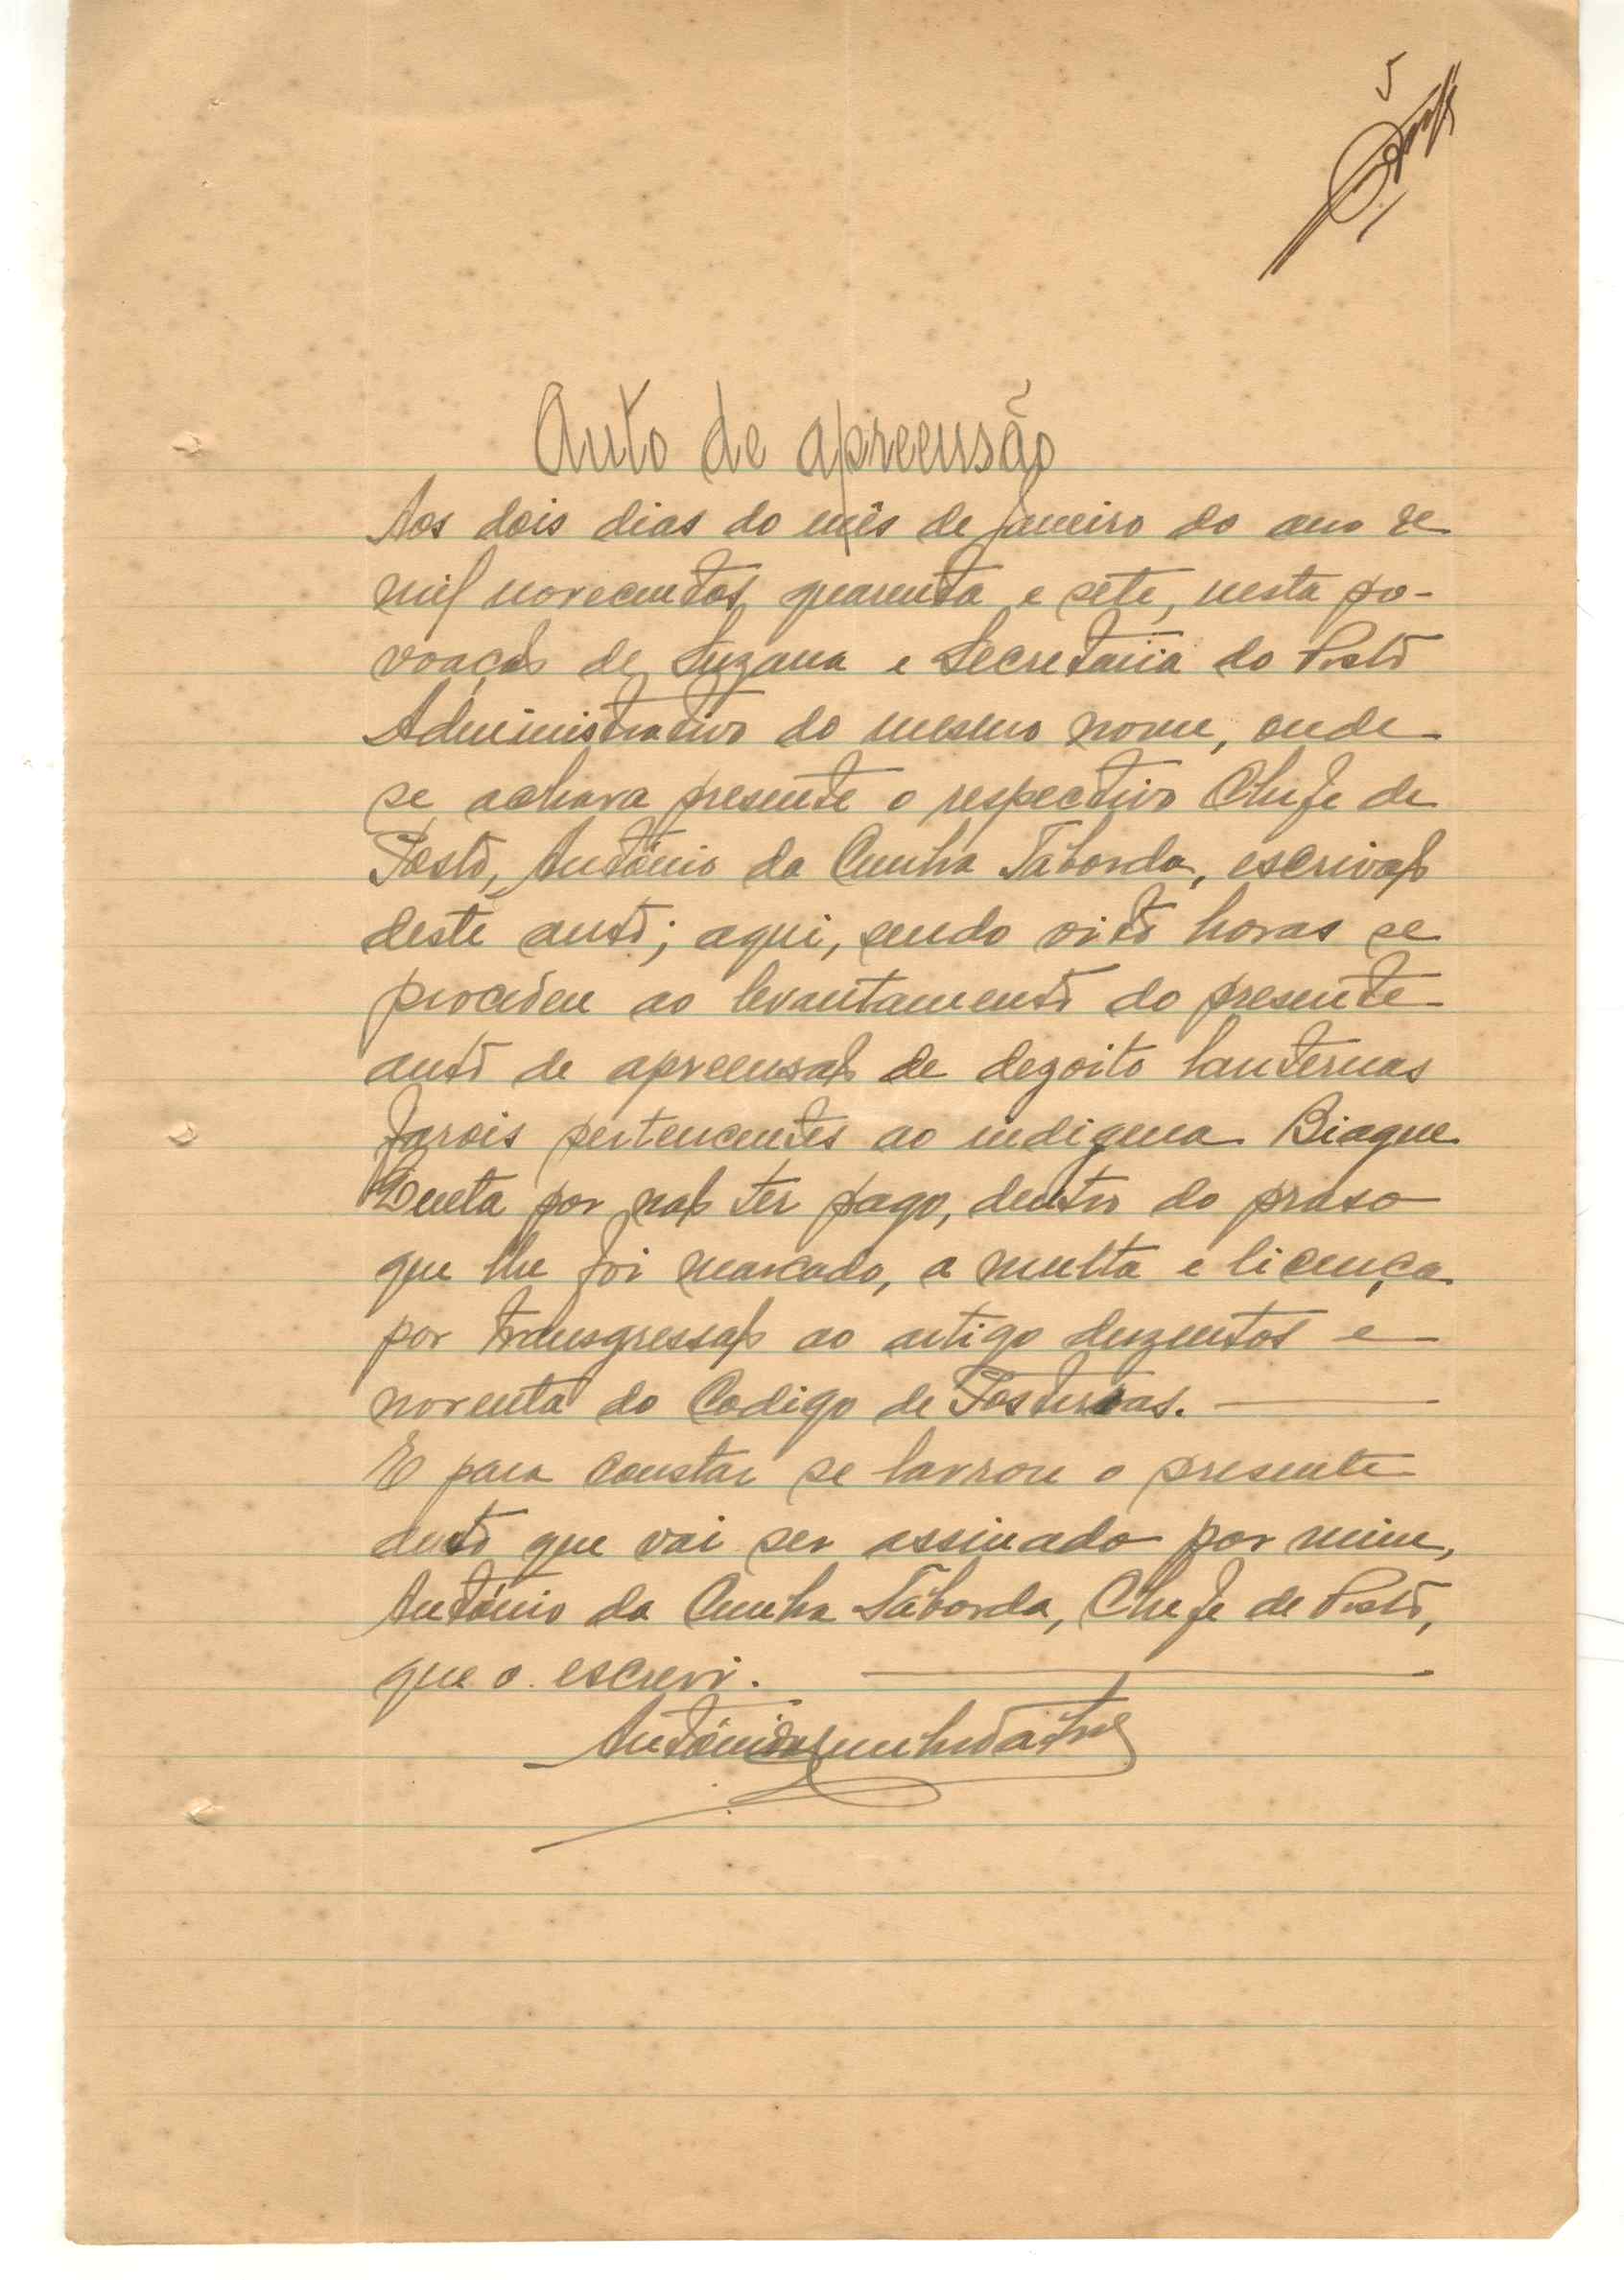 5
Auto de apreensão
Aos dois dias do mês de Janeiro do ano de
mil novecentos quarenta e sete, nesta po-
voação de Suzana e Secretaria do Posto
Administrativo do mesmo nome, onde
se achava presente o respectivo Chefe de
Posto, António da Cunha Taborda, escrivão
deste auto; aqui, sendo oito horas se
procedeu ao levantamento do presente
auto de apreensão de dezoito lanternas
farois pertencentes ao indigena Biague
por não ter pago, dentro do praso
que lhe foi marcado, a multa e licença
por transgressão ao artigo duzentos e
noventa do Codigo de Posturas.
E para constar se lavrou o presente
auto que vai ser assinado por mim,
António da Cunha Taborda, Chefe de Posto,
que o escrevi.
António da Cunha Taborda